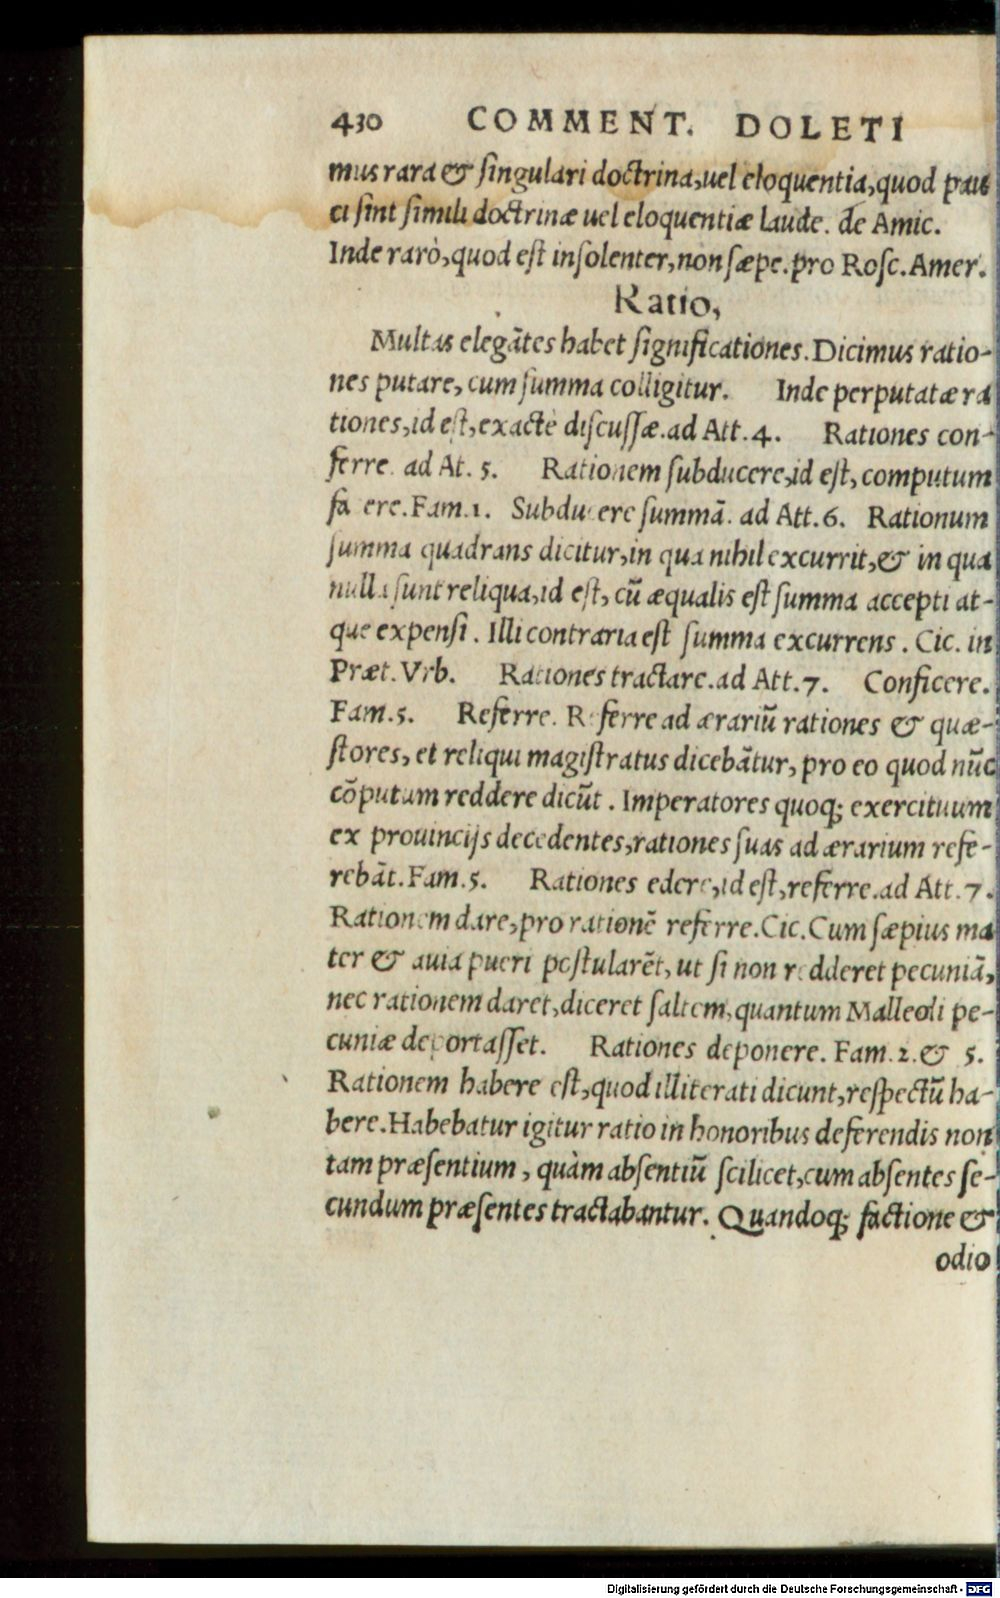 430 COMMENT. DOLETI
mus rara & singulari doctrina, uel eloquentia, quod pau
ci sint simili doctrinæ uel eloquentiæ laude. de Amic.
Inde rarò, quod est insolenter, non sæpe. pro Rosc. Amer.
Ratio,
Multas elegātes habet significationes. Dicimus ratio-
nes putare, cum summa colligitur. Inde perputatæ ra
tiones, id est, exactè discussæ. ad Att. 4. Rationes con-
ferre. ad At. 5. Rationem subducere, id est, computum
facere. Fam. 1. Subducere summā. ad Att. 6. Rationum
summa quadrans dicitur, in qua nihil excurrit, & in qua
nulla sunt reliqua, id est, cū æqualis est summa accepti at-
que expensi. Illi contraria est summa excurrens. Cic. in
Præt. Vrb. Rationes tractare. ad Att. 7. Conficere.
Fam. 5. Referre. Referre ad ærariū rationes & quæ-
stores, et reliqui magistratus dicebātur, pro eo quod nūc
cōputum reddere dicūt. Imperatores quoq; exercituum
ex prouincijs decedentes, rationes suas ad ærarium refe-
rebāt. Fam. 5. Rationes edere, id est, referre. ad Att. 7.
Rationem dare, pro rationē referre. Cic. Cum sæpius ma
ter & auia pueri postularēt, ut si non redderet pecuniā,
nec rationem daret, diceret saltem, quantum Malleoli pe-
cuniæ deportasset. Rationes deponere. Fam. 2. & 5.
Rationem habere est, quod illiterati dicunt, respectū ha-
bere. Habebatur igitur ratio in honoribus deferendis non
tam præsentium, quàm absentiū scilicet, cum absentes se-
cundum præsentes tractabantur. Quandoq; factione &
odio
Digitalisierung gefördert durch die Deutsche Forschungsgemeinschaft - DFG